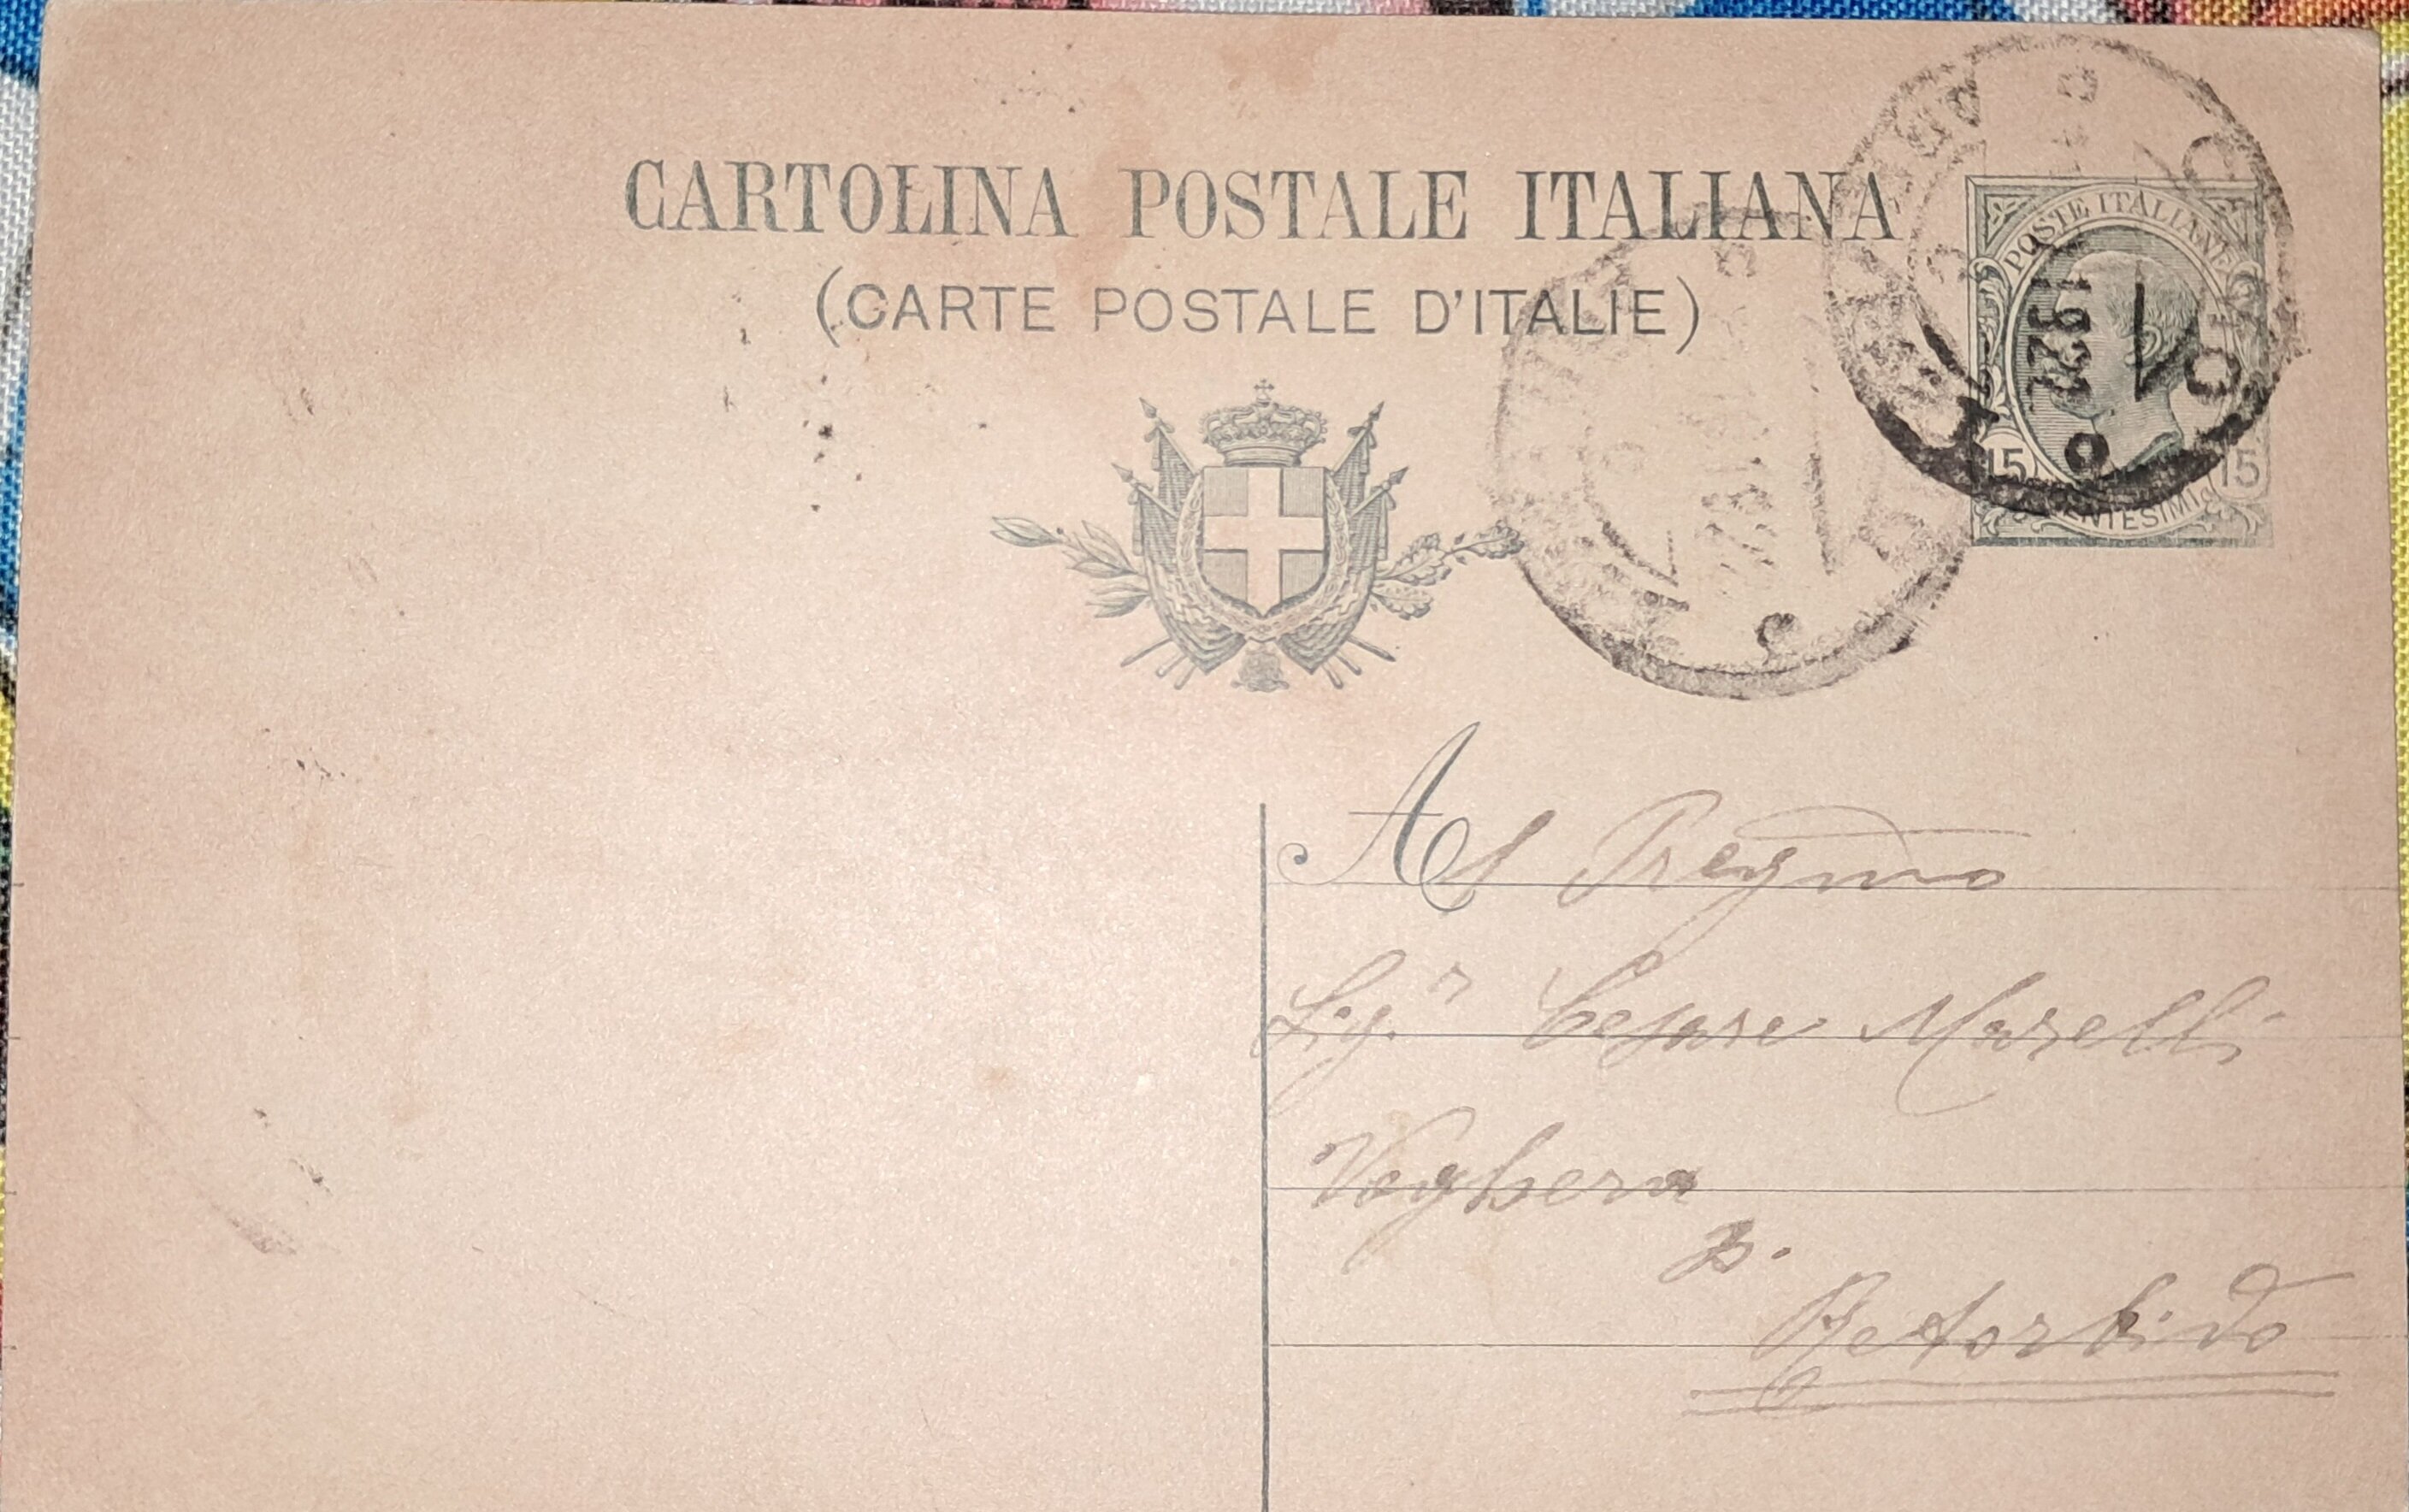 CARTOLINA POSTALE ITALIANA
(CARTE POSTALE D'ITALIE)
POSTE ITALIANE
1922
15 15
CENTESIMI
Al Pregmo
Sig.r Cesare Marelli
Voghera
p.
Retorbido